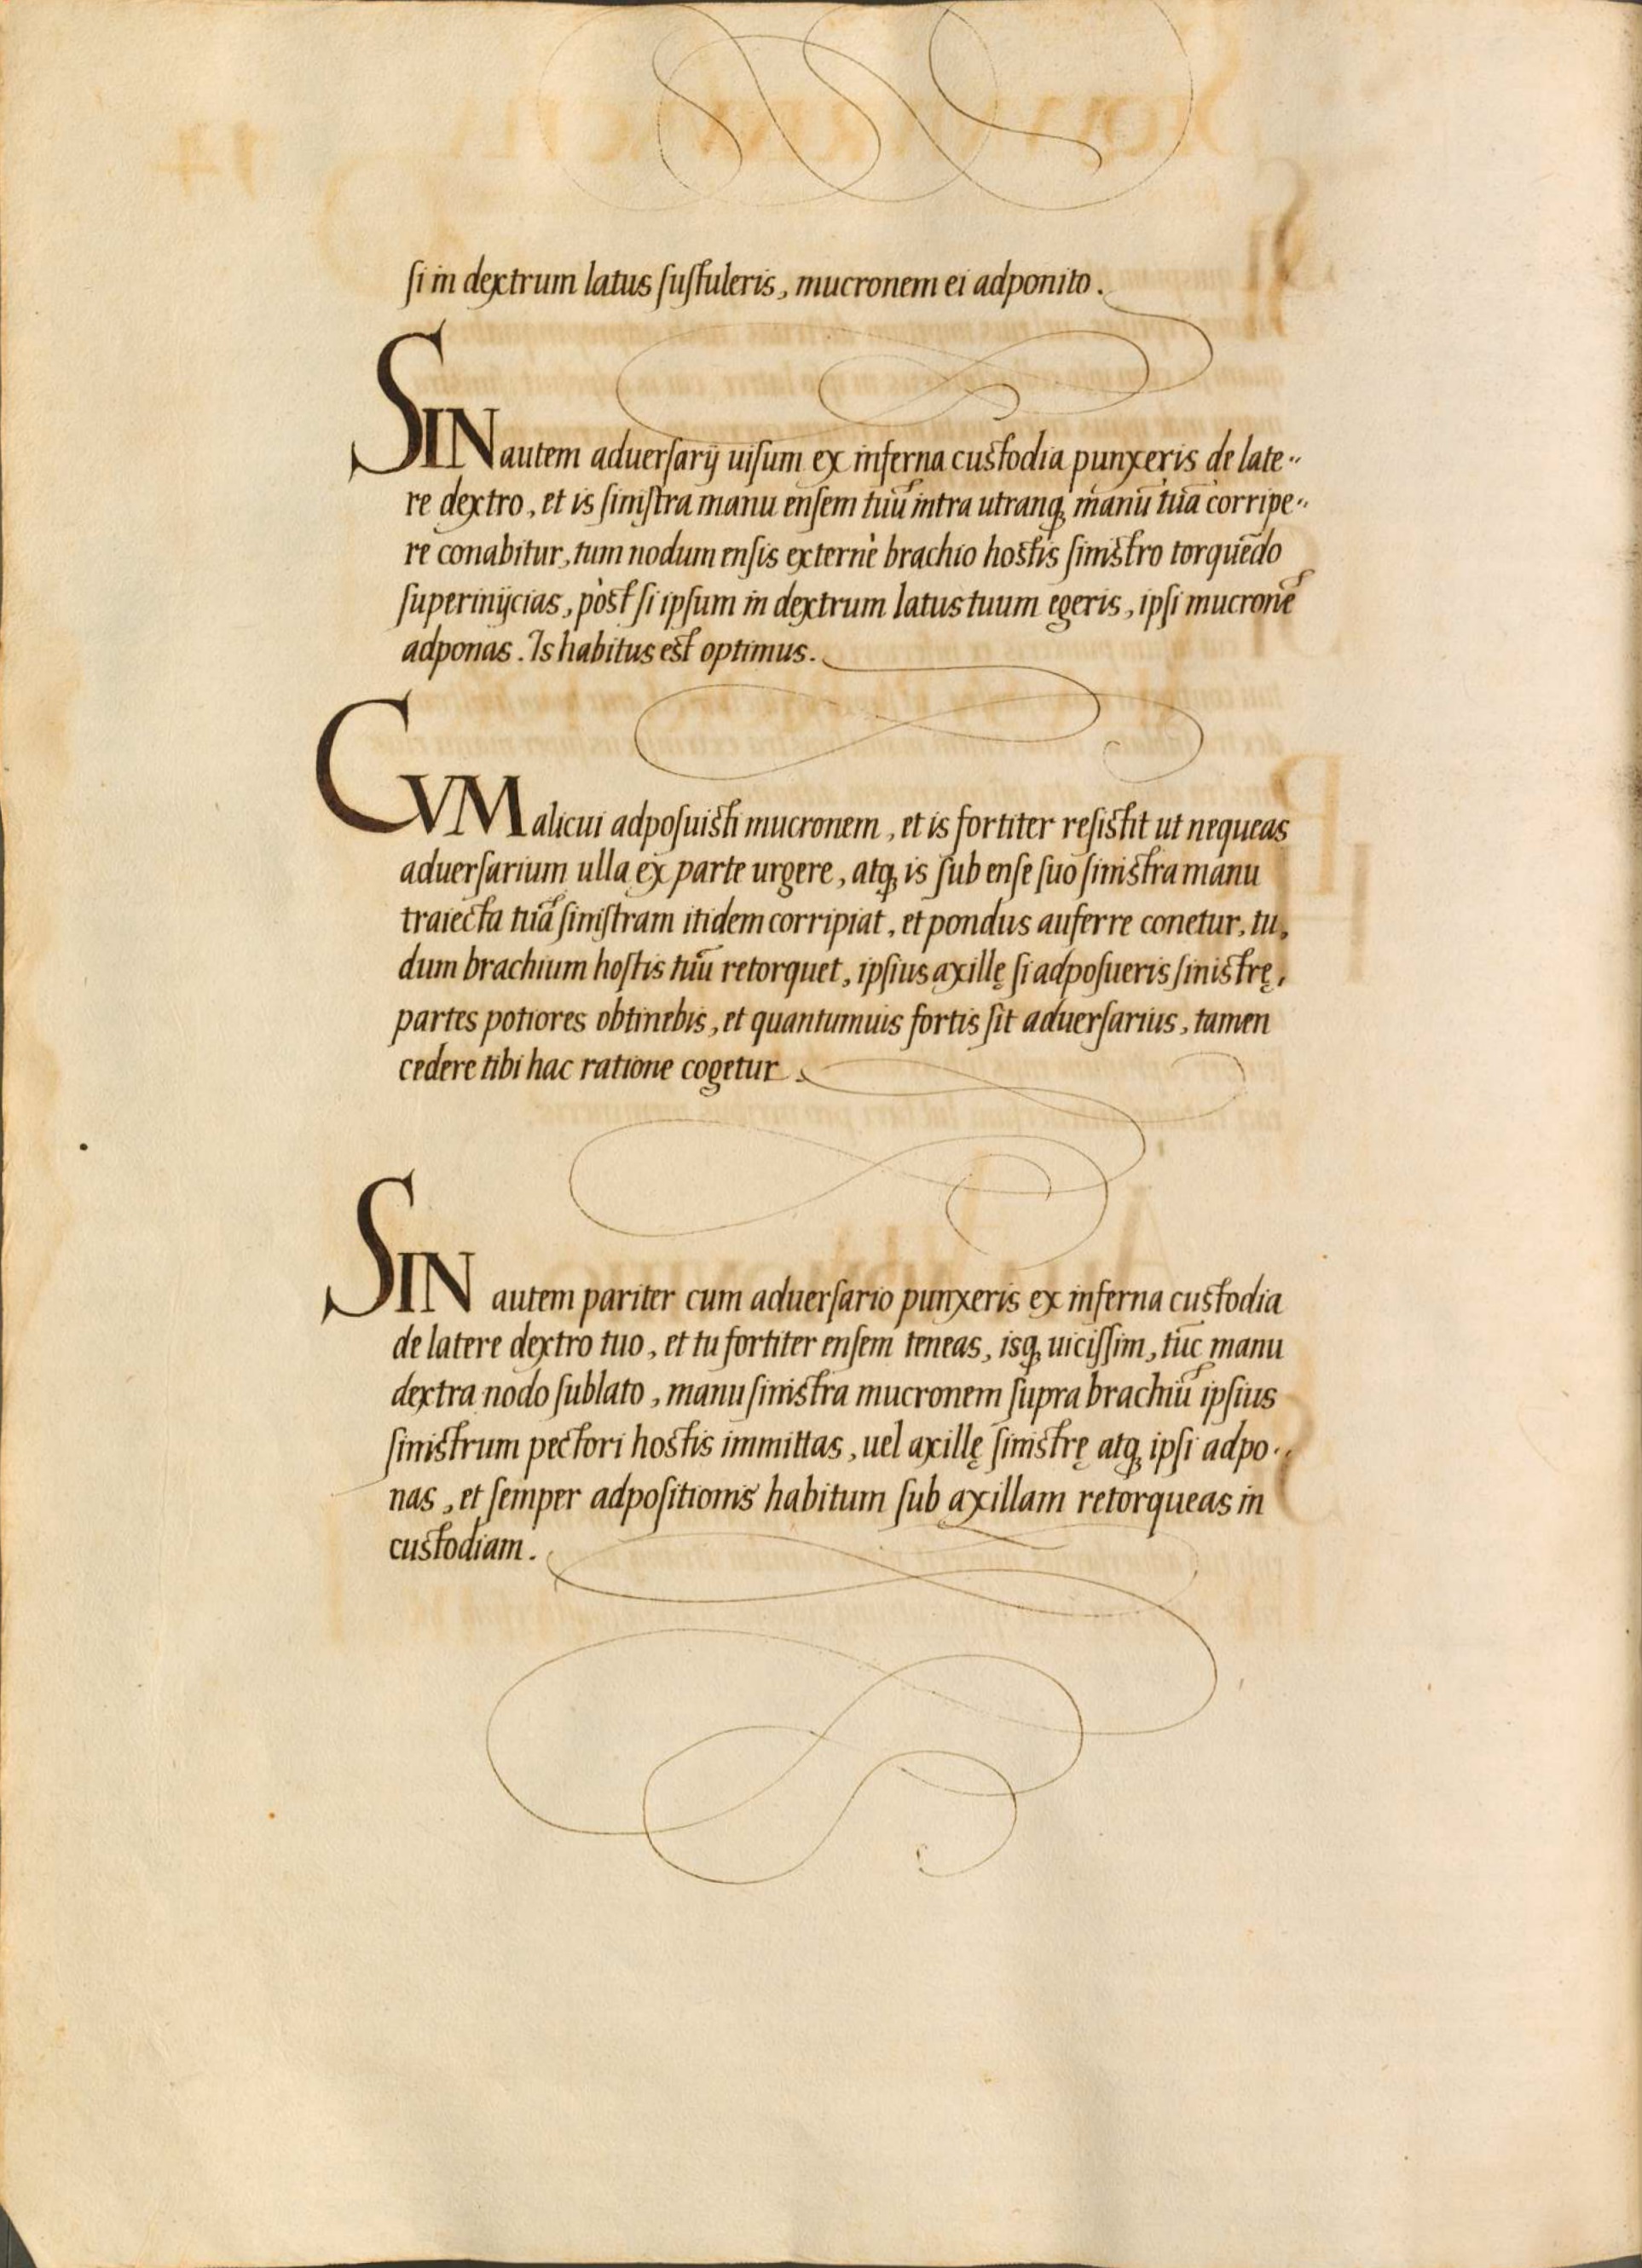 si in dextrum latus sustuleris, mucronem ei adponito.
SIN autem aduersarij uisum ex inferna custodia punxeris de late-
re dextro, et is sinistra manu ensem tuū intra utranq; manū tuā corripe-
re conabitur, tum nodum ensis externè brachio hostis sinistro torquēdo
superinijcias, pòst si ipsum in dextrum latus tuum egeris, ipsi mucronē
adponas. Is habitus est optimus.
CVM alicui adposuisti mucronem, et is fortiter resistit ut nequeas
aduersarium ulla ex parte urgere, atq; is sub ense suo sinistra manu
traiecta tuā sinistram itidem corripiat, et pondus auferre conetur, tu,
dum brachium hostis tuū retorquet, ipsius axillę si adposueris sinistrę,
partes potiores obtinebis, et quantumuis fortis sit aduersarius, tamen
cedere tibi hac ratione cogetur.
SIN autem pariter cum aduersario punxeris ex inferna custodia
de latere dextro tuo, et tu fortiter ensem teneas, isq; uicissim, tūc manu
dextra nodo sublato, manu sinistra mucronem supra brachiū ipsius
sinistrum pectori hostis immittas, uel axillę sinistrę atq; ipsi adpo-
nas, et semper adpositionis habitum sub axillam retorqueas in
custodiam.